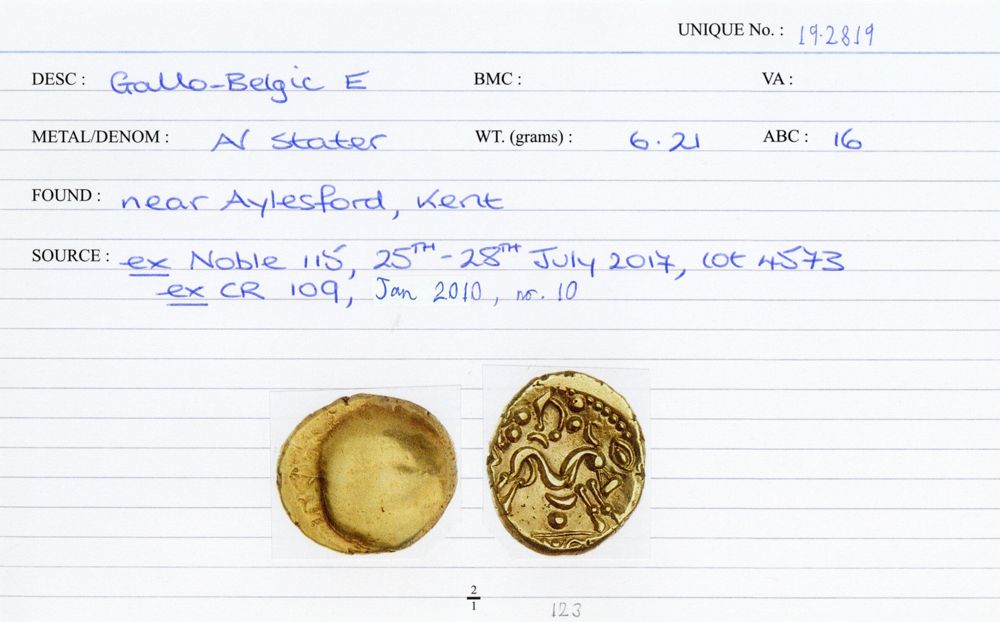 UNIQUE No. : 19.2819
DESC : Gallo-Belgic E BMC : VA :
METAL/DENOM : AV Stater WT. (grams) : 6.21 ABC : 16
FOUND : near Aylesford, Kent
SOURCE : ex Noble 115, 25TH - 28TH July 2017, lot 4573
ex CR 109, Jan 2010, no. 10
2
1
123